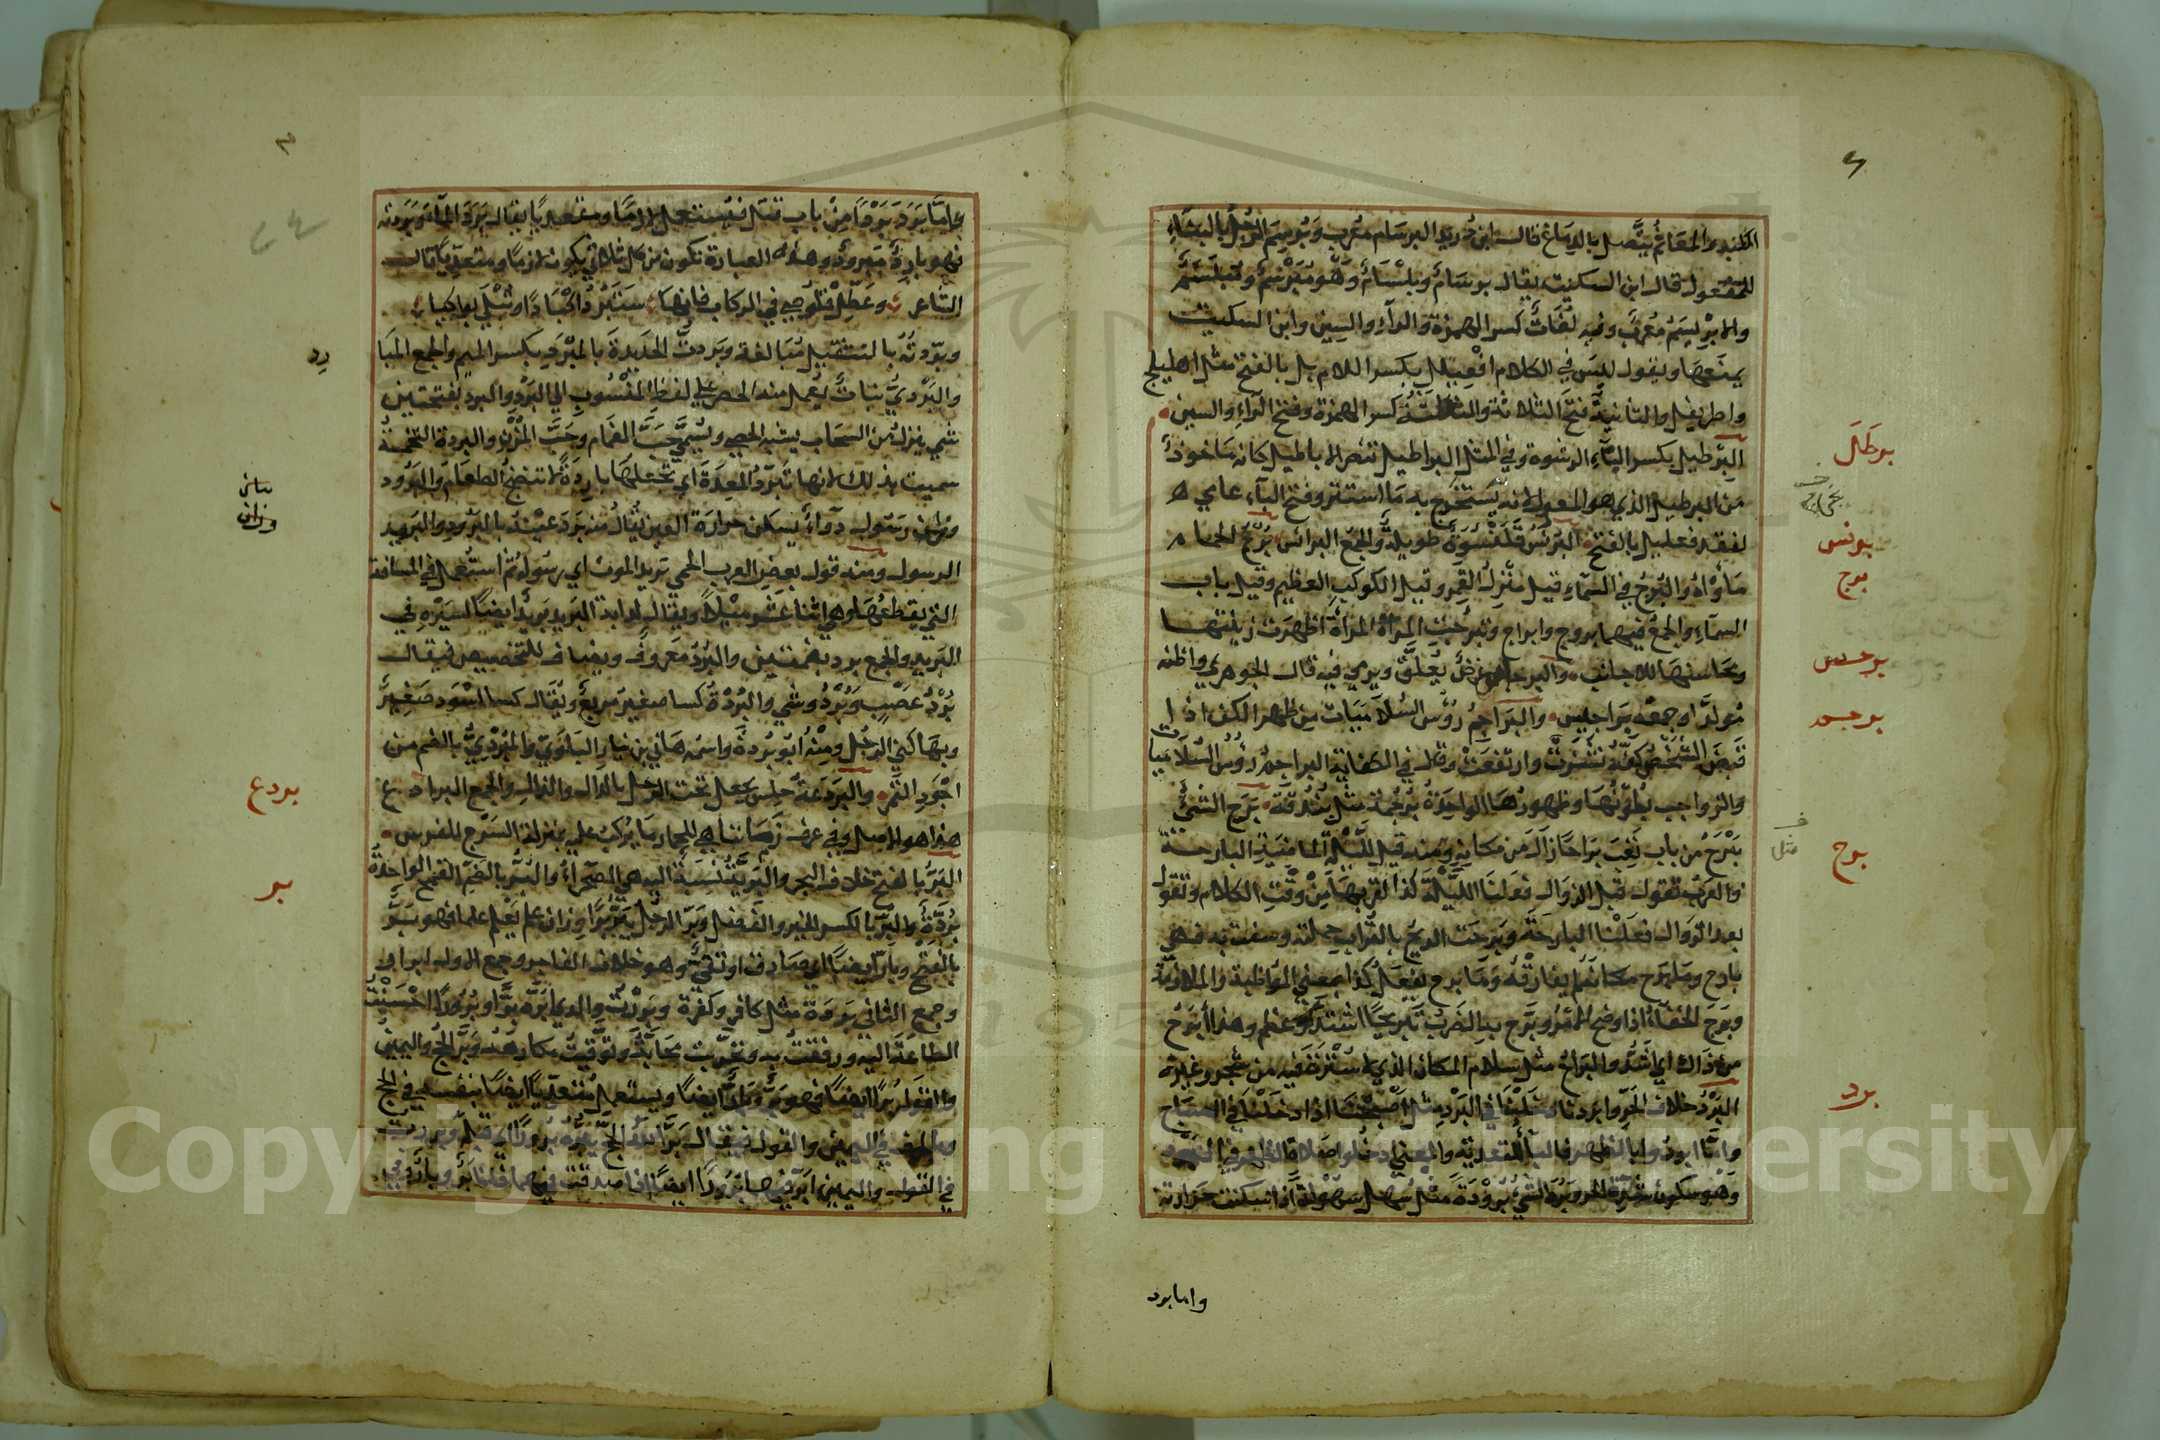 الكبد والمعا ثم يتصل بالدماغ قال ابن دريد البرسام معرب وبرسم الرجل بالبناء
للمفعول قال ابن السكيت يقال برسام وبلسام وهو مبرسم ومبلسم
والابريسم معرب وفيه لغات كسر الهمزة والراء والسين وابن السكيت
يمنعها ويقول ليس في الكلام افعيلل بكسر اللام بل بالفتح مثل اهليلج
واطريفل والثانية فتح الثلاثة والثالثة كسر الهمزة وفتح الراء والسين
البرطيل بكسر الباء الرشوة وفي المثل البراطيل تنصر الاباطيل كانه ماخوذ
من البرطيل الذي هو المعول لانه يستخرج به ما استتر وفتح الباء عامي
لفقد فعليل بالفتح البرنس قلنسوة طويلة والجمع البرانس برج الحمام
ماواه والبرج في السماء قيل منزل القمر وقيل الكوكب العظيم وقيل باب
السماء والجمع فيهما بروج وابراج وتبرجت المراة اظهرت زينتها
ومحاسنها للاجانب والبرجاس غرض يعلق ويرمى فيه قال الجوهري واظنه
مولدا وجمعه براجيس والبراجم رؤس السلاميات من ظهر الكف اذا
قبض الشخص كفه نشزت وارتفعت وقال في الكفاية البراجم رؤس السلاميات
والرواجب بطونها وظهورها الواحدة برجمة مثل بندقة برح الشيء
يبرح من باب تعب براحا زال من مكانه ومنه قيل لليلة الماضية البارحة
والعرب تقول قبل الزوال فعلنا الليلة كذا لقربها من وقت الكلام وتقول
بعد الزوال فعلنا البارحة وبرحت الريح بالتراب حملته وسفت به فهي
بارح وما برح مكانه لم يفارقه وما برح يفعل كذا بمعنى المواظبة والملازمة
وبرح الخفاء اذا وضح الامر وبرح به الضرب تبريحا اشتد وعظم وهذا ابرح
من ذاك اي اشد والبراح مثل سلام المكان الذي لا سترة فيه من شجر وغيره
البرد خلاف الحر وابردنا دخلنا في البرد مثل اصبحنا اذا دخلنا في الصباح
واما ابردوا بالظهر فالباء للتعدية والمعنى ادخلوا صلاة الظهر في البرد
وهو سكون شدة الحر وبرد الشيء برودة مثل سهل سهولة اذا سكنت حرارته
برطال
برنس
برج
برجس
برجم
برح
برد
واما برد
واما برد بردا من باب قتل فيستعمل لازما ومتعديا يقال برد الماء وبردته
فهو بارد مبرود وهذه العبارة تكون من كل ثلاثي يكون لازما ومتعديا قال
الشاعر وعطل قلوصي في الركاب فانها ستبرد اكبادا وتبكي بواكيا
وبردته بالتثقيل مبالغة وبردت الحديدة بالمبرد بكسر الميم والجمع المبا
رد
والبردي نبات يعمل منه الحصر على لفظ المنسوب الى البرد والبرد بفتحتين
شيء ينزل من السحاب يشبه الحصى ويسمى حب الغمام وحب المزن والبردة التخمة
سميت بذلك لانها تبرد المعدة اي تجعلها باردة لا تنضج الطعام والبرود
وزان رسول دواء يسكن حرارة العين يقال منه برد عينه بالبرود والبريد
الرسول ومنه قول بعض العرب الحمى بريد الموت اي رسوله ثم استعمل في المسافة
التي يقطعها وهي اثنا عشر ميلا ويقال لدابة البريد بريد ايضا لسيره في
البريد والجمع برد بضمتين والبرد معروف ويضاف للتخصيص فيقال
برد عصب وبرد وشي والبردة كسا صغير مربع ويقال كسا اسود صغير
وبها كني الرجل ومنه ابو بردة واسمه هاني بن نيار البلوي والبردي بالضم من
اجود التمر والبردعة حلس يجعل تحت الرحل بالدال والذال والجمع البرادع
هذا هو الاصل وفي عرف زماننا هي للحمار ما يركب عليه بمنزلة السرج للفرس
البر بالفتح خلاف البحر والبرية نسبة اليه هي الصحراء والبر بالضم القمح الواحدة
برة والبر بالكسر الخير والفضل وبر الرجل يبر برا وزان علم يعلم علما فهو بر
بالفتح وبار ايضا اي صادق او تقي وهو خلاف الفاجر وجمع الاول ابرار
وجمع الثاني بررة مثل كافر وكفرة وبررت والدي ابره برا وبرورا احسنت
الطاعة اليه ورفقت به وتحريت محابه وتوقيت مكارهه وبر الحج واليمين
والقول برا ايضا فهو بر وبار ايضا ويستعمل متعديا ايضا بنفسه في الحج
وبالحرف في اليمين والقول فيقال بر الله الحج يبره برورا اي قبله وبررت
في القول واليمين ابر فيهما برورا ايضا اذا صدقت فيهما فانا بر وبار
بردع
بر
Copyright King University